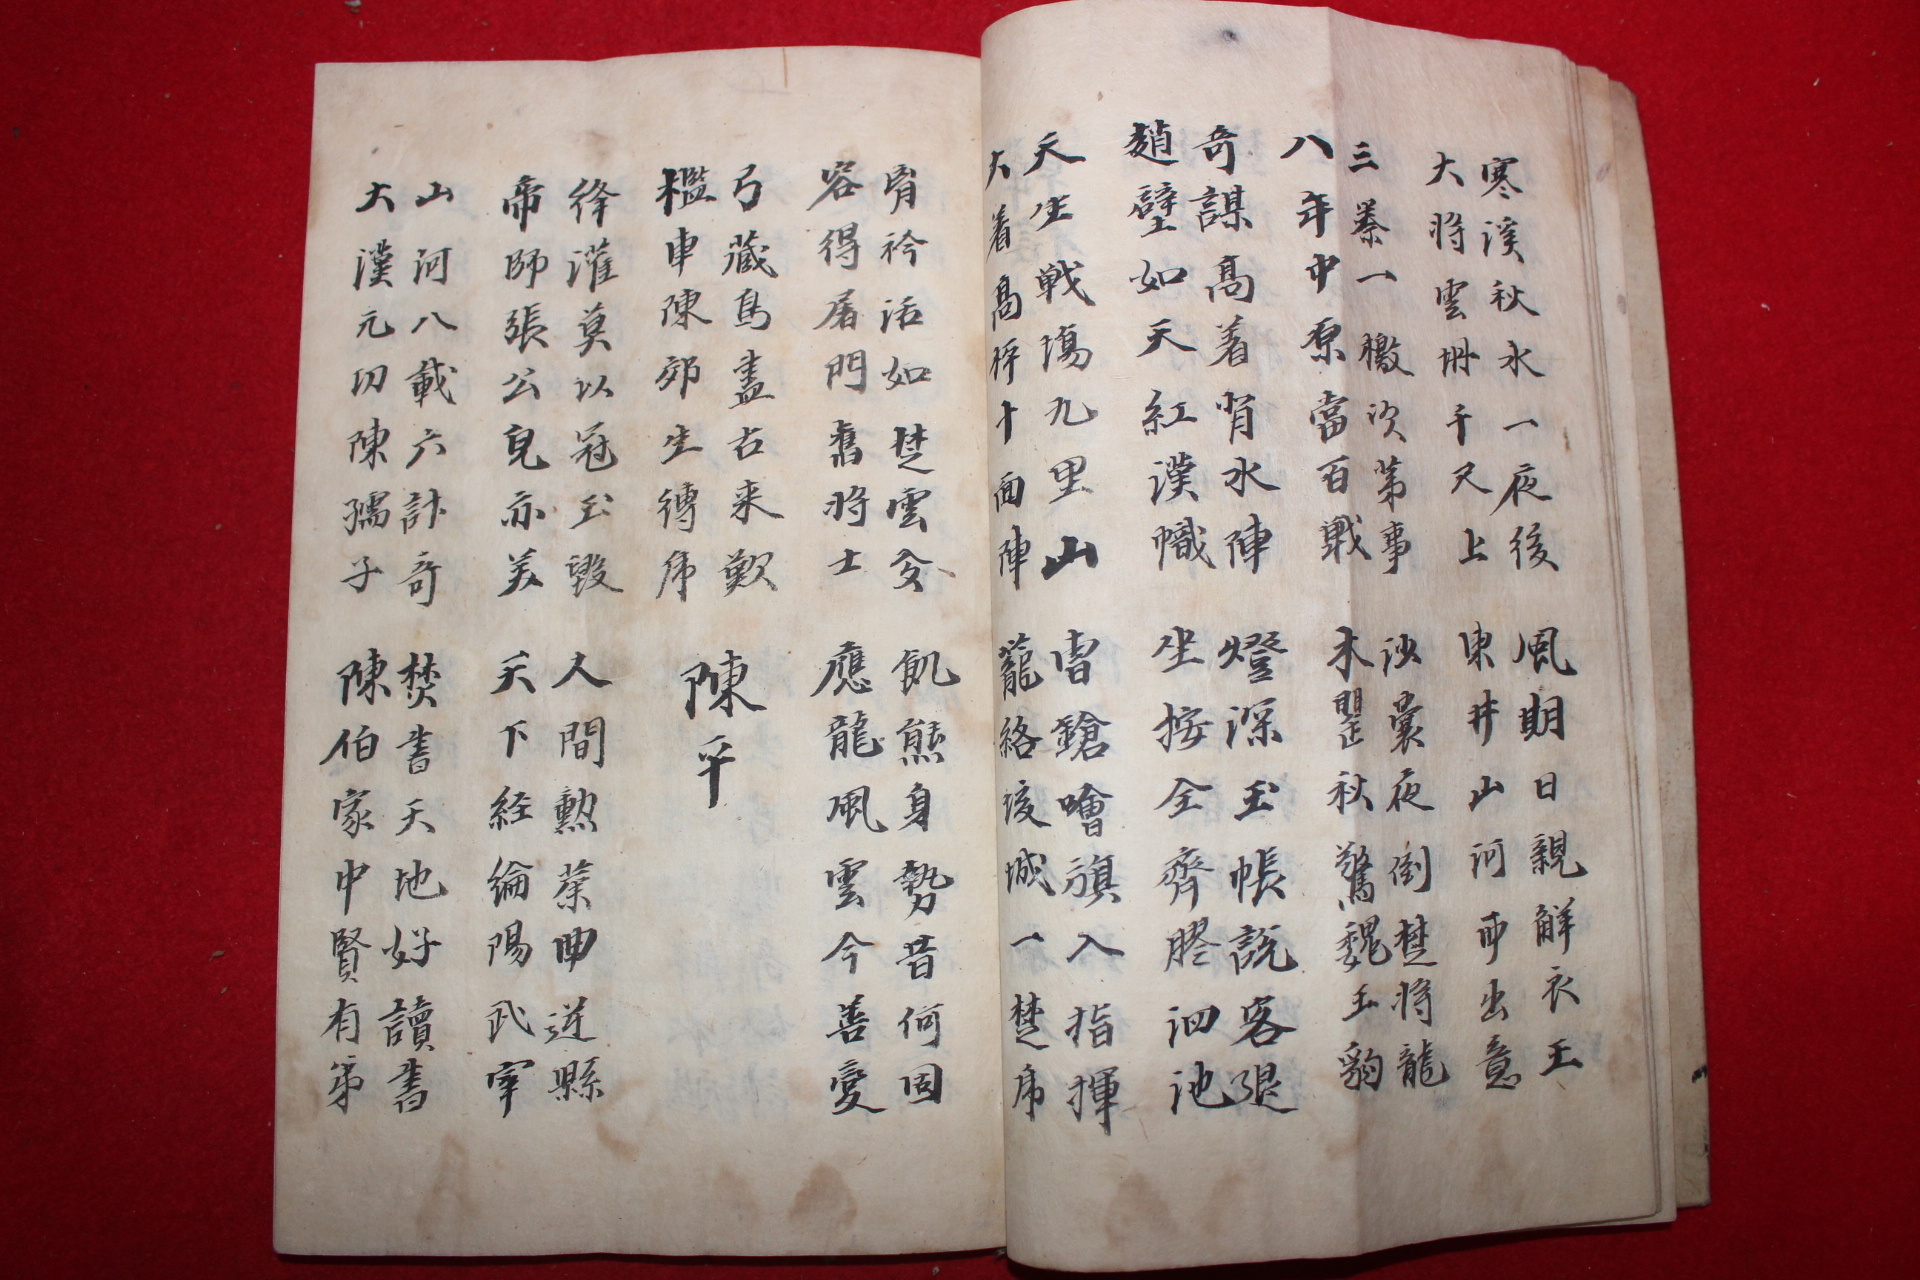 寒溪秋水一夜後 風期日親解衣王
大將雲坍千尺上 東井山河事出意
三秦一檄次第事 沙囊夜倒楚將龍
八年中原當百戰 木罌秋驚魏王豹
奇謀高着背水陣 燈深玉帳説客退
趙壁如天紅漢幟 坐按全齊膠泗池
天生戰場九里山 曺鎗噲旗入指揮
大着高秤十面陣 籠絡垓城一楚虎
胷衿活如楚雲 飢熊身勢昔何困
容得屠門舊將士 應龍風雲今善變
弓藏鳥盡古来歎
檻車陳郊生縛虎
陳平
絳灌莫以冠玉毀 人間勲業曲逆縣
帝師張公皃亦美 天下経綸陽武宰
山河八載六計奇 焚書天地好讀書
大漢元功陳孺子 陳伯家中賢有弟